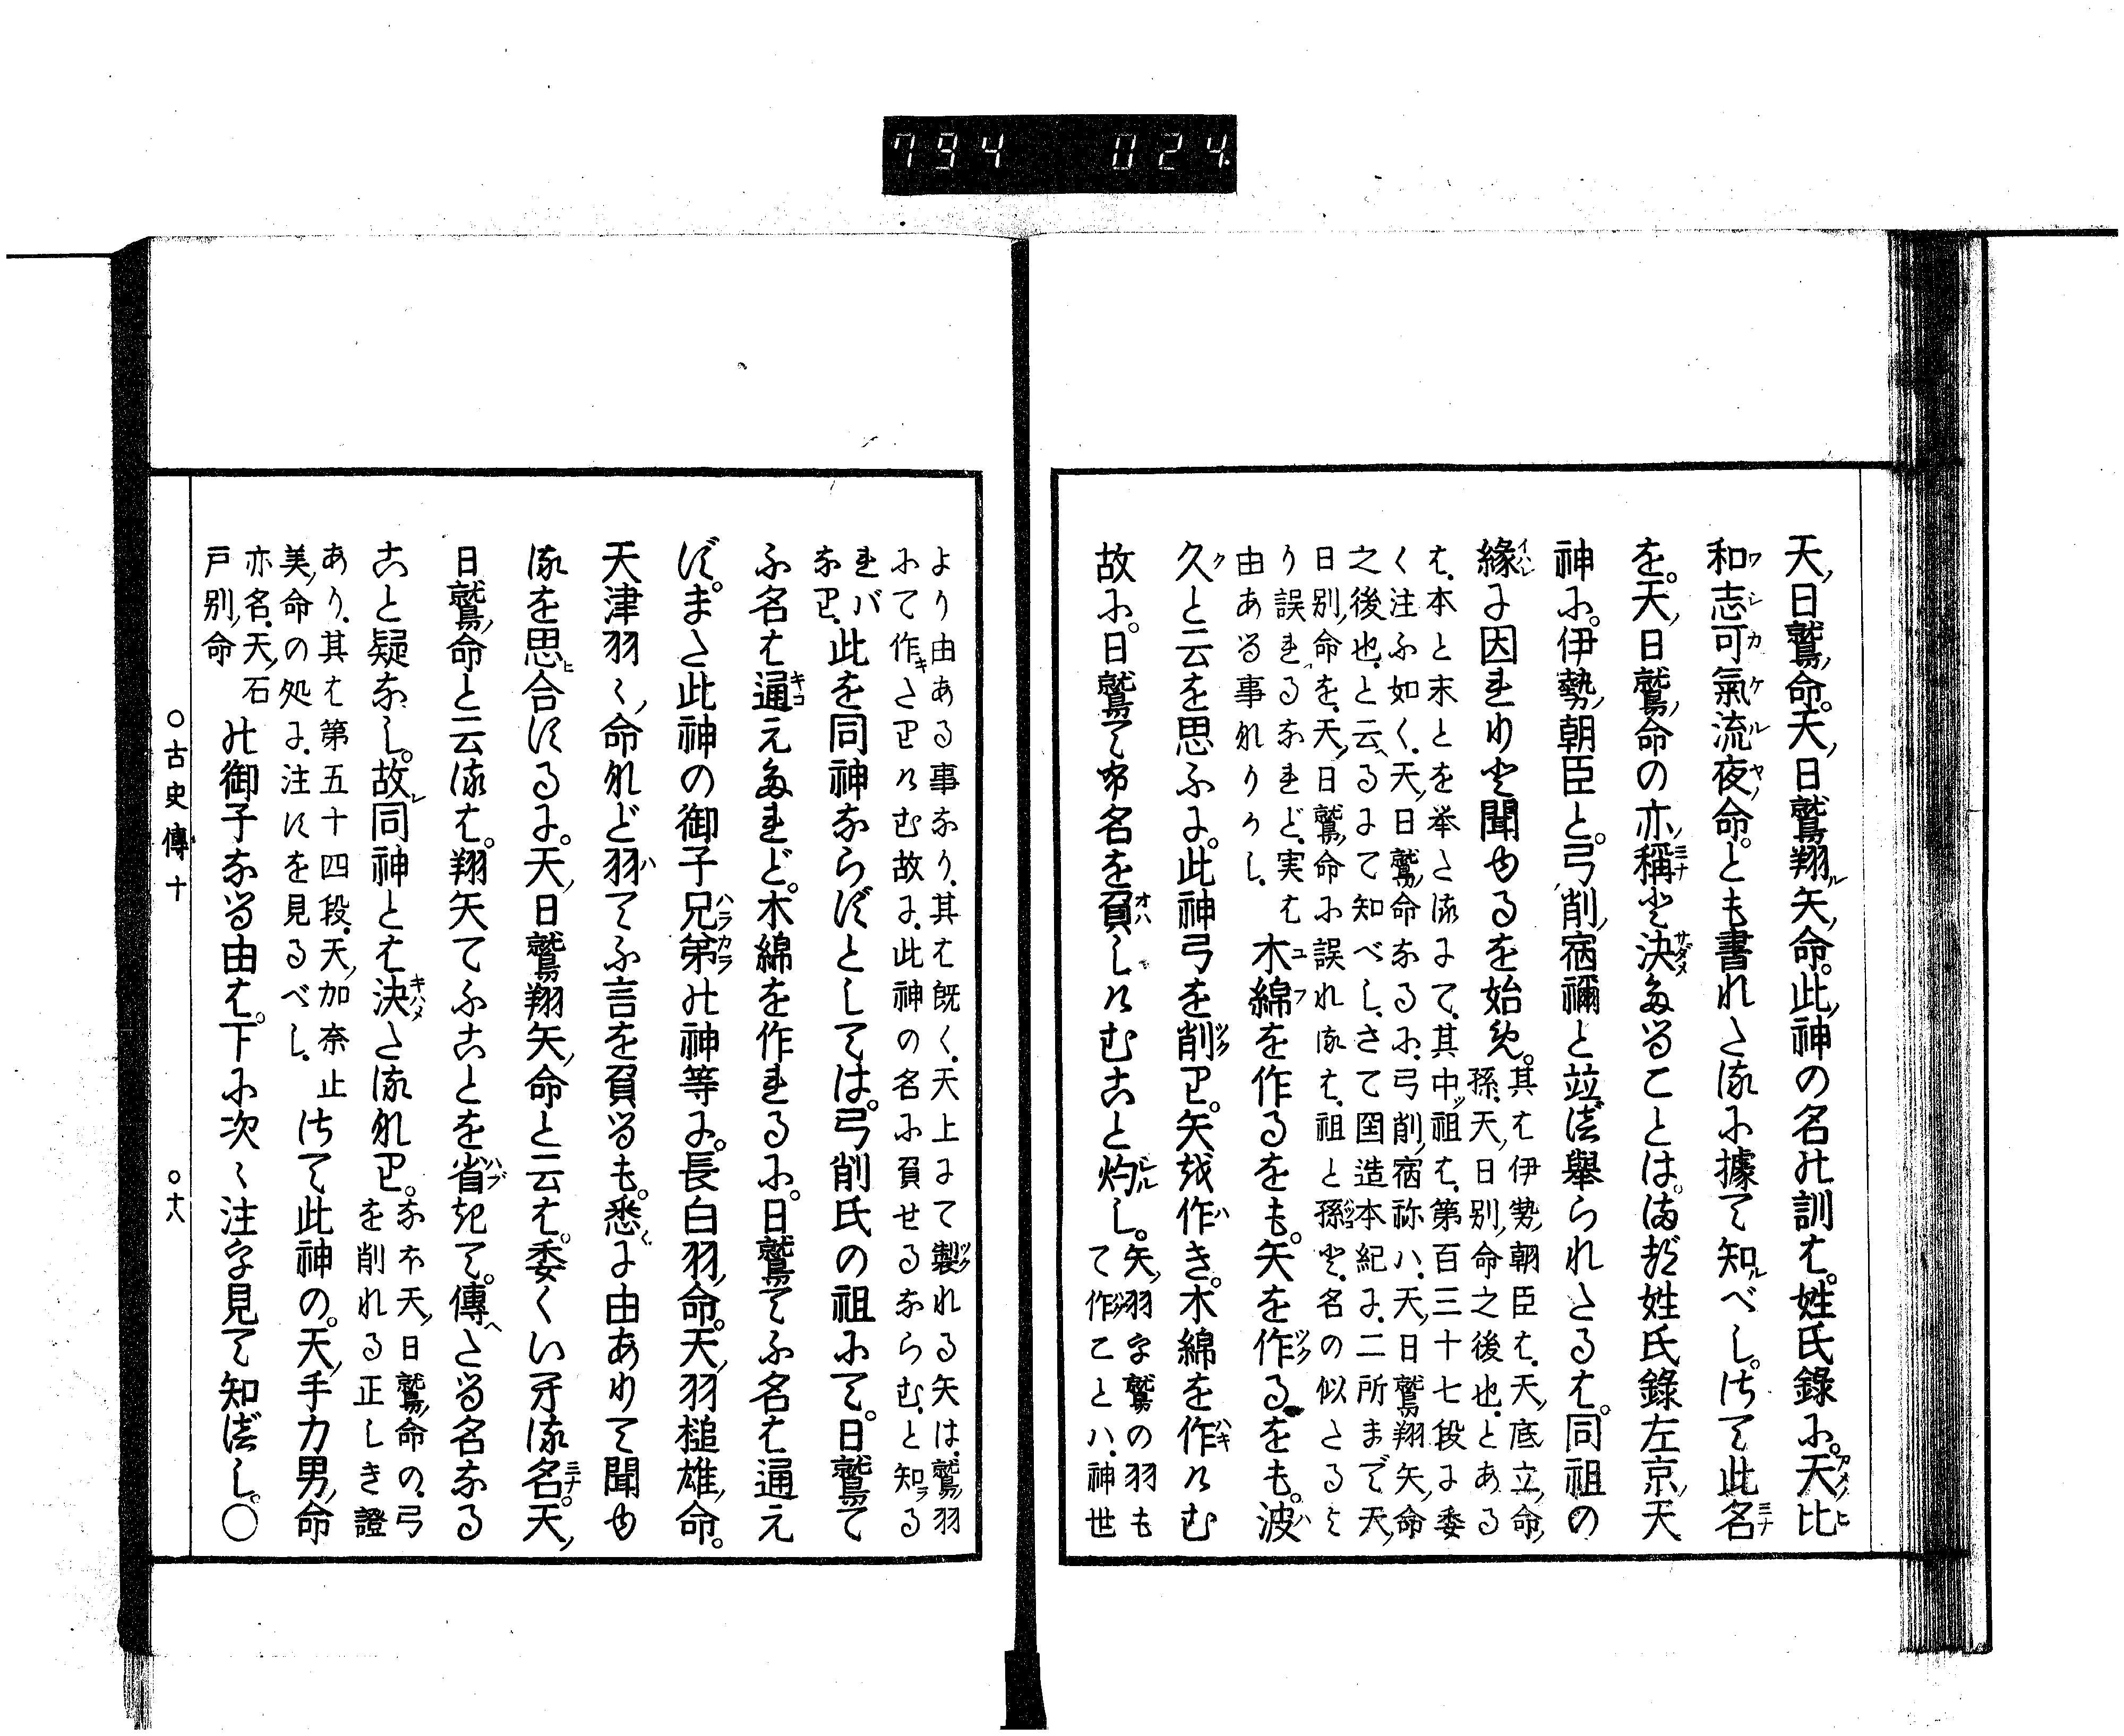 794 024
天ノ日鷲ノ命。天ノ日鷲翔矢ノ命。此ノ神の名の訓は。姓氏錄に。天比
和志可氣流夜命。とも書れたるに據て知べし。さて此名
を。天ノ日鷲ノ命の亦ノ稱と決たることは。まづ姓氏錄左京ノ天
神に。伊勢ノ朝臣と。弓削ノ宿禰と並べ擧られたるは。同祖の
緣に因れりと聞ゆるを始め。
其は伊勢ノ朝臣は、天ノ底立ノ命ノ
孫、天ノ日別ノ命之後也、とある
は、本と末とを挙たるにて、其中祖は、第百三十七段に委
く注ふ如く、天ノ日鷲ノ命なるに、弓削ノ宿祢ハ、天ノ日鷲翔矢ノ命
之後也、と云へるにて知べし、さて国造本紀に、二所まで天ノ
日別ノ命を、天ノ日鷲ノ命に誤れるは、祖と孫と、名の似たるよ
り誤れるなれど、実は
由ある事なりかし、
木綿を作るをも。矢を作るをも。波
久と云を思ふに。此神弓を削り。矢を作き。木綿を作けむ
故に。日鷲てふ名を負しけむこと灼し。
矢ノ羽に鷲の羽も
て作ことハ、神世
より由ある事なり、其は既く、天上にて製れる矢は、鷲ノ羽
にて作たりけむ故に、此神の名に負せるならむ、と知る
れバ
なり、
此を同神ならずとしては。弓削氏の祖にて。日鷲て
ふ名は通えたれど。木綿を作れるに。日鷲てふ名は通え
ず。また此神の御子兄弟の神等に。長白羽ノ命。天ノ羽槌雄ノ命。
天津羽〱ノ命など羽てふ言を負るも。悉に由ありて聞ゆ
るを思合するに。天ノ日鷲翔矢ノ命と云は。委くいふ名。天ノ
日鷲ノ命と云るは。翔矢てふことを省きて。傳へたる名なる
こと疑なし。故同神とは決たるなり。
なほ天ノ日鷲ノ命の、弓
を削れる正しき證
あり、其は第五十四段、天ノ加奈止
美ノ命の処に、注すを見るべし、
さて此神の。天ノ手力男ノ命
亦名、天ノ石
戸別ノ命
の御子なる由は。下に次〱注を見て知べし。〇
〇古史傳十 〇十八